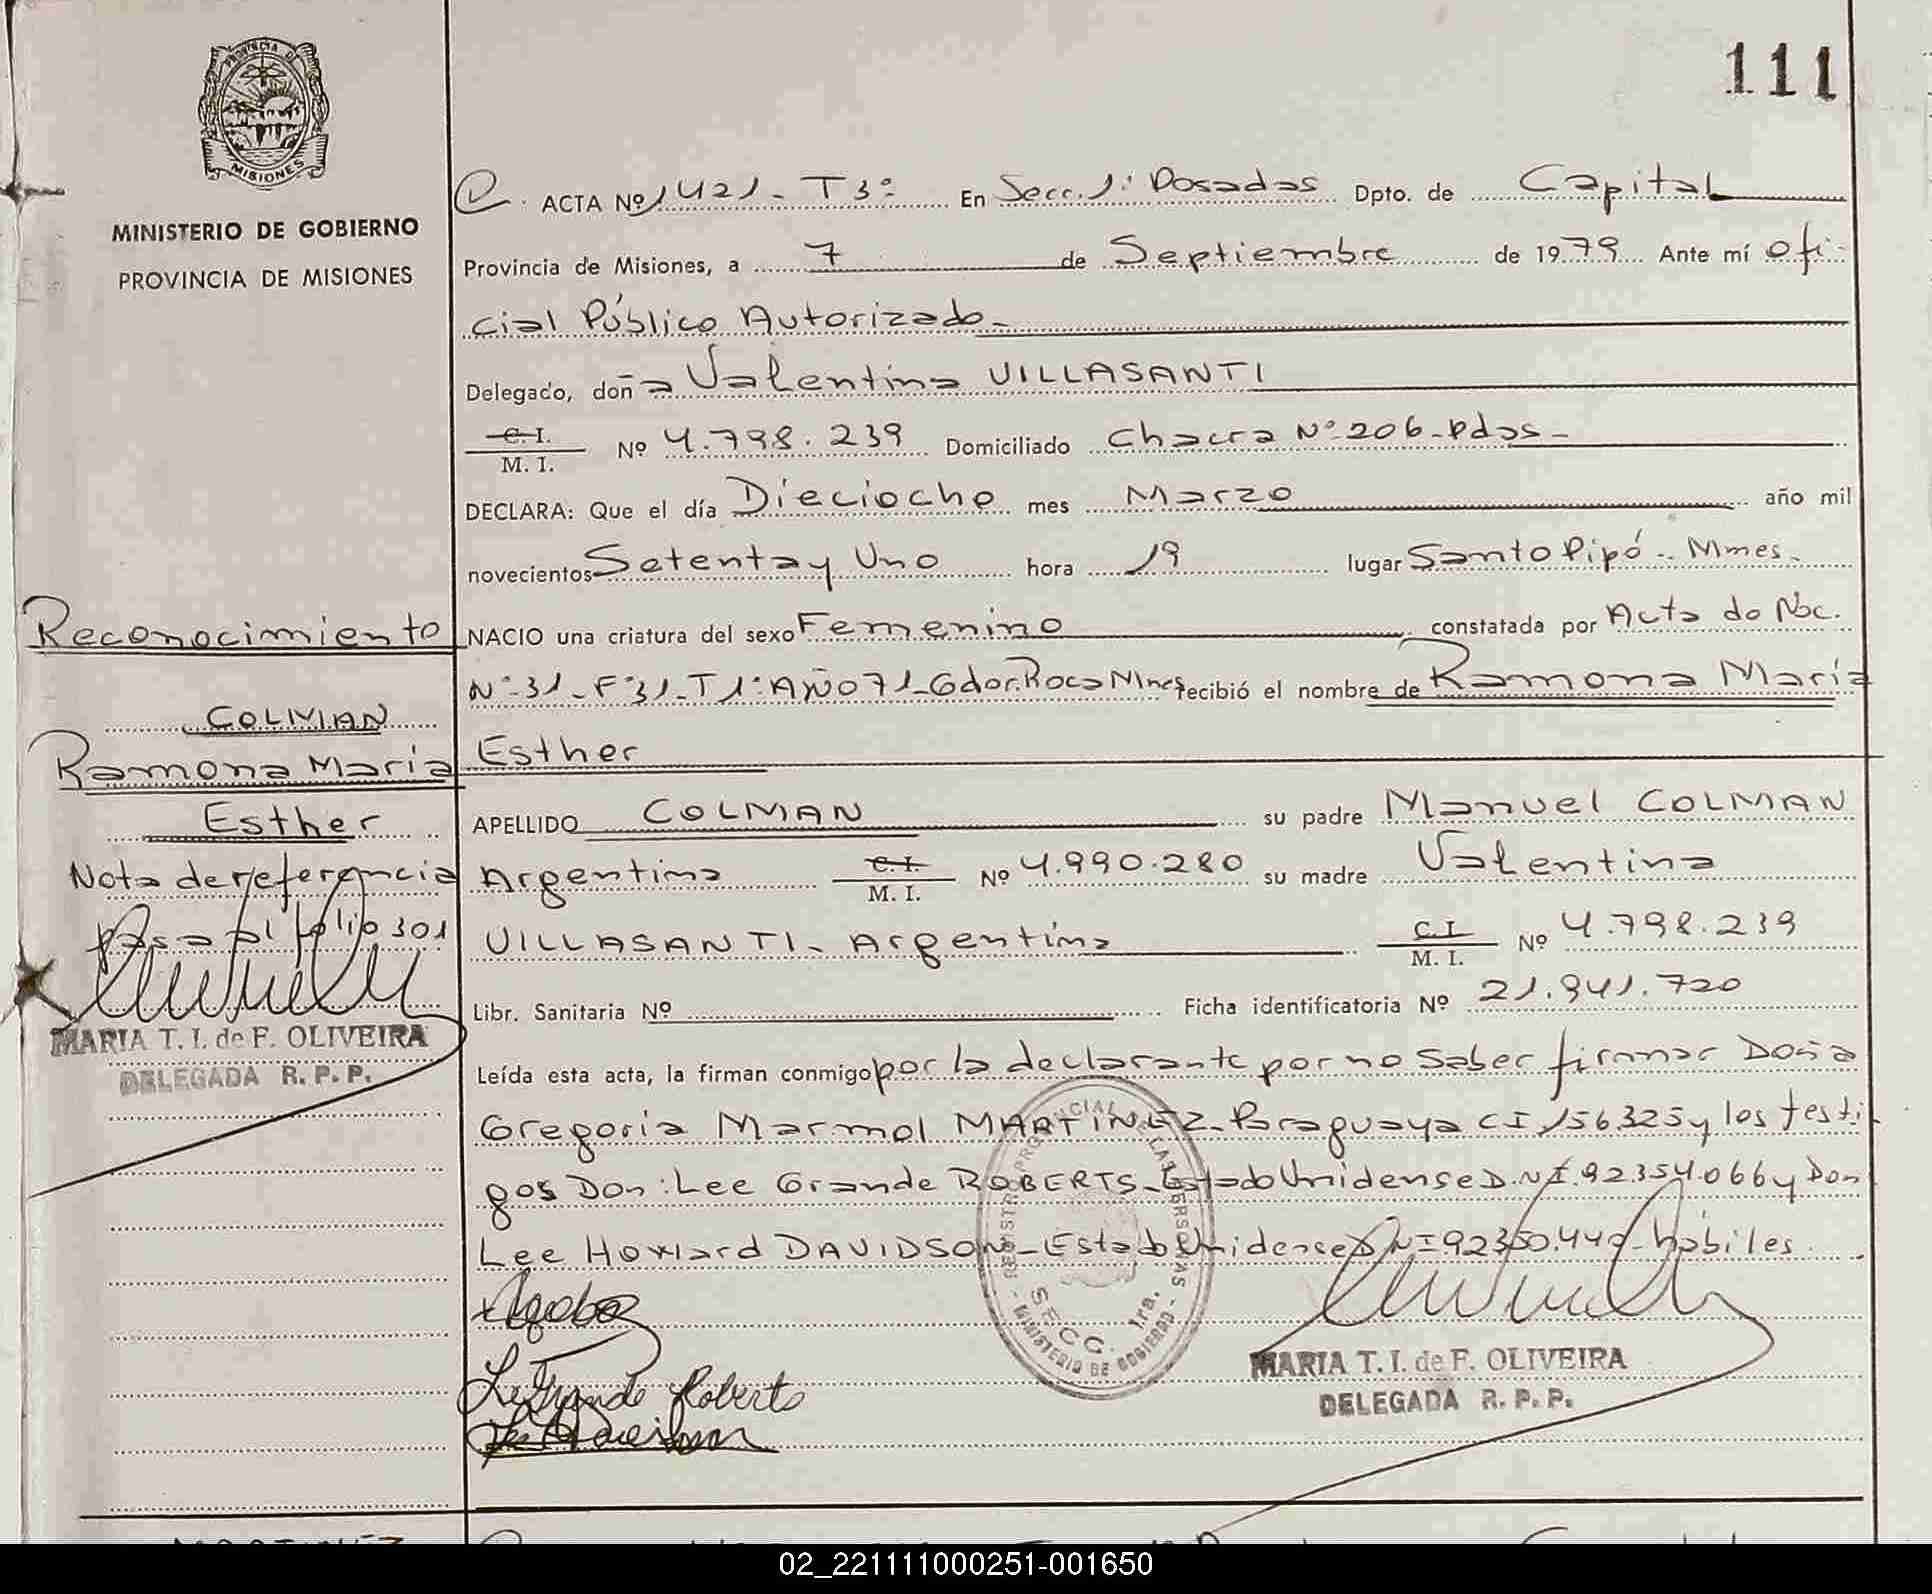 111
PROVINCIA DE
MISIONES
MINISTERIO DE GOBIERNO
PROVINCIA DE MISIONES
ACTA Nº 1421 - T 3º En Secc. 1ª Posadas Dpto. de Capital
Provincia de Misiones, a 7 de Septiembre de 1979 Ante mí ofi-
cial Público Autorizado-
Delegado, doña Valentina VILLASANTI
C. I. / M. I. Nº 4.798.239 Domiciliado Chacra Nº 206-Pdas-
DECLARA: Que el día Dieciocho mes Marzo año mil
novecientos Setenta y Uno hora 19 lugar Santo Pipó - Mnes-
NACIO una criatura del sexo Femenino constatada por Acta de Nac.
Nº 31- Fº 31- T 1º- AÑO 71- Gdor. Roca Mnes recibió el nombre de Ramona María
Esther
APELLIDO COLMAN su padre Manuel COLMAN
Argentina C. I. / M. I. Nº 4.990.280 su madre Valentina
VILLASANTI- Argentina C. I. / M. I. Nº 4.798.239
Libr. Sanitaria Nº Ficha identificatoria Nº 21.941.720
Leída esta acta, la firman conmigo por la declarante por no saber firmar Doña
Gregoria Marmol MARTINEZ- Paraguaya CI 156325 y los testi-
gos Don: Lee Grande ROBERTS- Estado Unidense D.N.I. 92.354.066 y Don
Lee Howard DAVIDSON- Estado Unidense DNI 92350.449- hábiles.
LeGrande Roberts
MARIA T. I. de F. OLIVEIRA
DELEGADA R. P. P.
SECC. 1ra.
MINISTERIO DE GOBIERNO
Reconocimiento
COLMAN
Ramona María
Esther
Nota de referencia
pasa al folio 301
MARIA T. I. de F. OLIVEIRA
DELEGADA R. P. P.
02_221111000251-001650